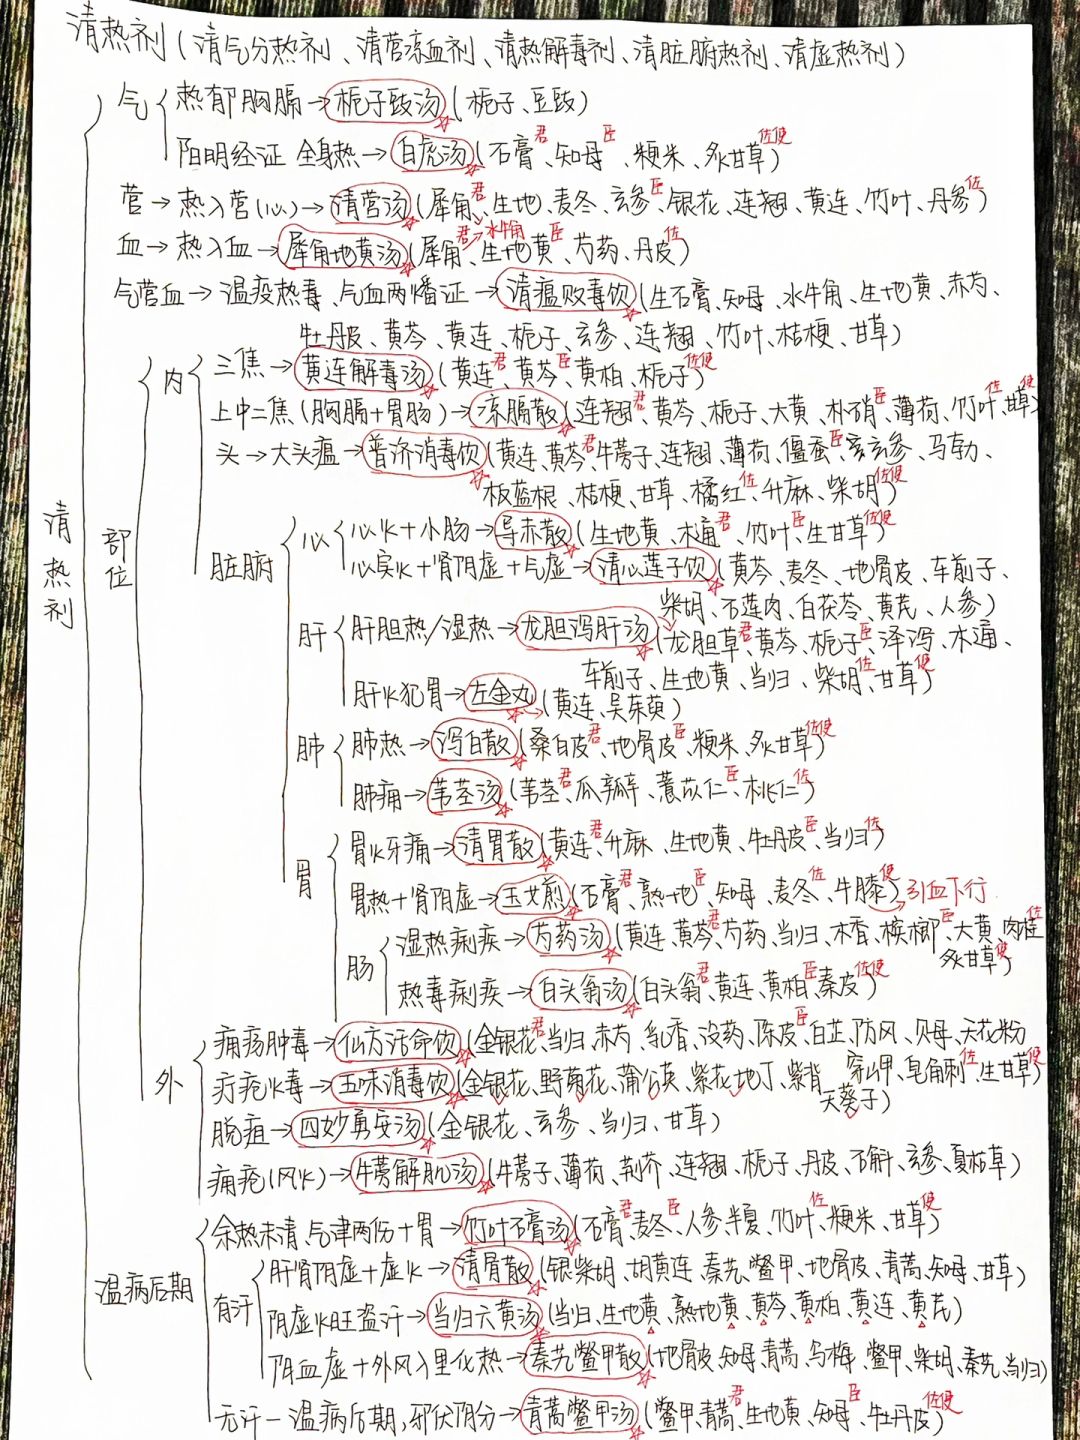 清热剂(清气分热剂、清营凉血剂、清热解毒剂、清脏腑热剂、清虚热剂)
气
热郁胸膈→栀子豉汤(栀子、豆豉)
阳明经证 全身热→白虎汤(石膏君、知母臣、粳米、炙甘草佐使)
营→热入营(心)→清营汤(犀角君、生地、麦冬、玄参臣、银花、连翘、黄连、竹叶、丹参佐)
水牛角
血→热入血→犀角地黄汤(犀角君、生地黄臣、芍药、丹皮佐)
气营血→温疫热毒、气血两燔证→清瘟败毒饮(生石膏、知母、水牛角、生地黄、赤芍、
牡丹皮、黄芩、黄连、栀子、玄参、连翘、竹叶、桔梗、甘草)
清热剂
部位
内
三焦→黄连解毒汤(黄连君、黄芩臣、黄柏、栀子佐使)
上中二焦(胸膈+胃肠)→凉膈散(连翘君、黄芩、栀子、大黄、朴硝臣、薄荷、竹叶佐、甘草使)
头→大头瘟→普济消毒饮(黄连、黄芩君、牛蒡子、连翘、薄荷、僵蚕臣、玄参、马勃、
板蓝根、桔梗、甘草、橘红佐、升麻、柴胡佐使)
脏腑
心
心火+小肠→导赤散(生地黄、木通君、竹叶臣、生甘草佐使)
心实火+肾阴虚+气虚→清心莲子饮(黄芩、麦冬、地骨皮、车前子、
柴胡、石莲肉、白茯苓、黄芪、人参)
肝
肝胆热/湿热→龙胆泻肝汤(龙胆草君、黄芩、栀子臣、泽泻、木通、
车前子、生地黄、当归、柴胡佐、甘草使)
肝火犯胃→左金丸(黄连、吴茱萸)
肺
肺热→泻白散(桑白皮君、地骨皮臣、粳米、炙甘草佐使)
肺痈→苇茎汤(苇茎君、瓜瓣、薏苡仁臣、桃仁佐)
胃
胃火牙痛→清胃散(黄连君、升麻、生地黄、牡丹皮臣、当归佐)
胃热+肾阴虚→玉女煎(石膏君、熟地臣、知母、麦冬佐、牛膝使)→引血下行.
肠
湿热痢疾→芍药汤(黄连、黄芩君、芍药、当归、木香、槟榔臣、大黄、肉桂佐
炙甘草使)
热毒痢疾→白头翁汤(白头翁君、黄连、黄柏臣、秦皮佐使)
外
痈疡肿毒→仙方活命饮(金银花君、当归、赤芍、乳香、没药、陈皮臣、白芷、防风、贝母、天花粉
穿山甲、皂角刺佐、生甘草使)
疔疮火毒→五味消毒饮(金银花、野菊花、蒲公英、紫花地丁、紫背
天葵子)
脱疽→四妙勇安汤(金银花、玄参、当归、甘草)
痈疮(风火)→牛蒡解肌汤(牛蒡子、薄荷、荆芥、连翘、栀子、丹皮、石斛、玄参、夏枯草)
温病后期
余热未清、气津两伤+胃→竹叶石膏汤(石膏君、麦冬臣、人参、半夏、竹叶佐、粳米、甘草使)
有汗
肝肾阴虚+虚火→清骨散(银柴胡、胡黄连、秦艽、鳖甲、地骨皮、青蒿、知母、甘草)
阴虚火旺盗汗→当归六黄汤(当归、生地黄、熟地黄、黄芩、黄柏、黄连、黄芪)
阴血虚+外风入里化热→秦艽鳖甲散(地骨皮、知母、青蒿、乌梅、鳖甲、柴胡、秦艽、当归)
无汗—温病后期,邪伏阴分→青蒿鳖甲汤(鳖甲、青蒿君、生地黄、知母臣、牡丹皮佐使)